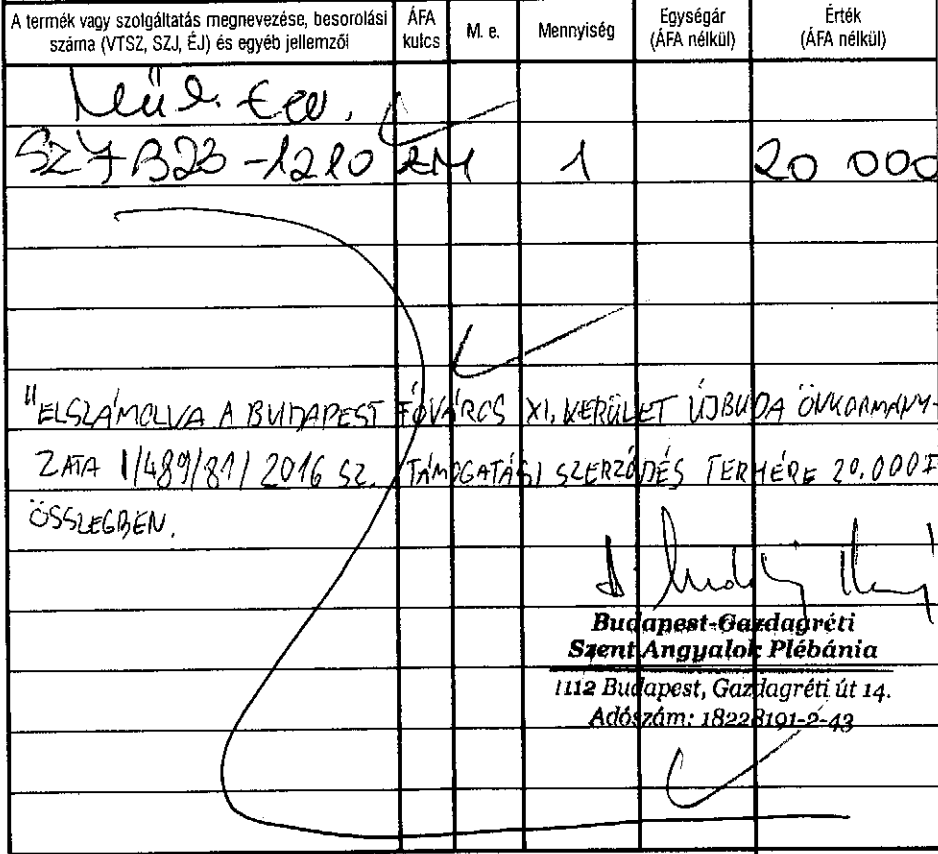 A termék vagy szolgáltatás megnevezése, besorolási száma (VTSZ, SZJ, ÉJ) és egyéb jellemzői
ÁFA kulcs
M. e.
Mennyiség
Egységár (ÁFA nélkül)
Érték (ÁFA nélkül)
SZJ B23-1210 1 20 000
"ELSZÁMOLVA A BUDAPEST FŐVÁROS XI. KERÜLET ÚJBUDA ÖNKORMÁNY-
ZATA 1/489/81/2016 SZ. TÁMOGATÁSI SZERZŐDÉS TERHÉRE 20.000
ÖSSZEGBEN.
Budapest-Gazdagréti
Szent Angyalok Plébánia
1112 Budapest, Gazdagréti út 14.
Adószám: 18228191-2-43